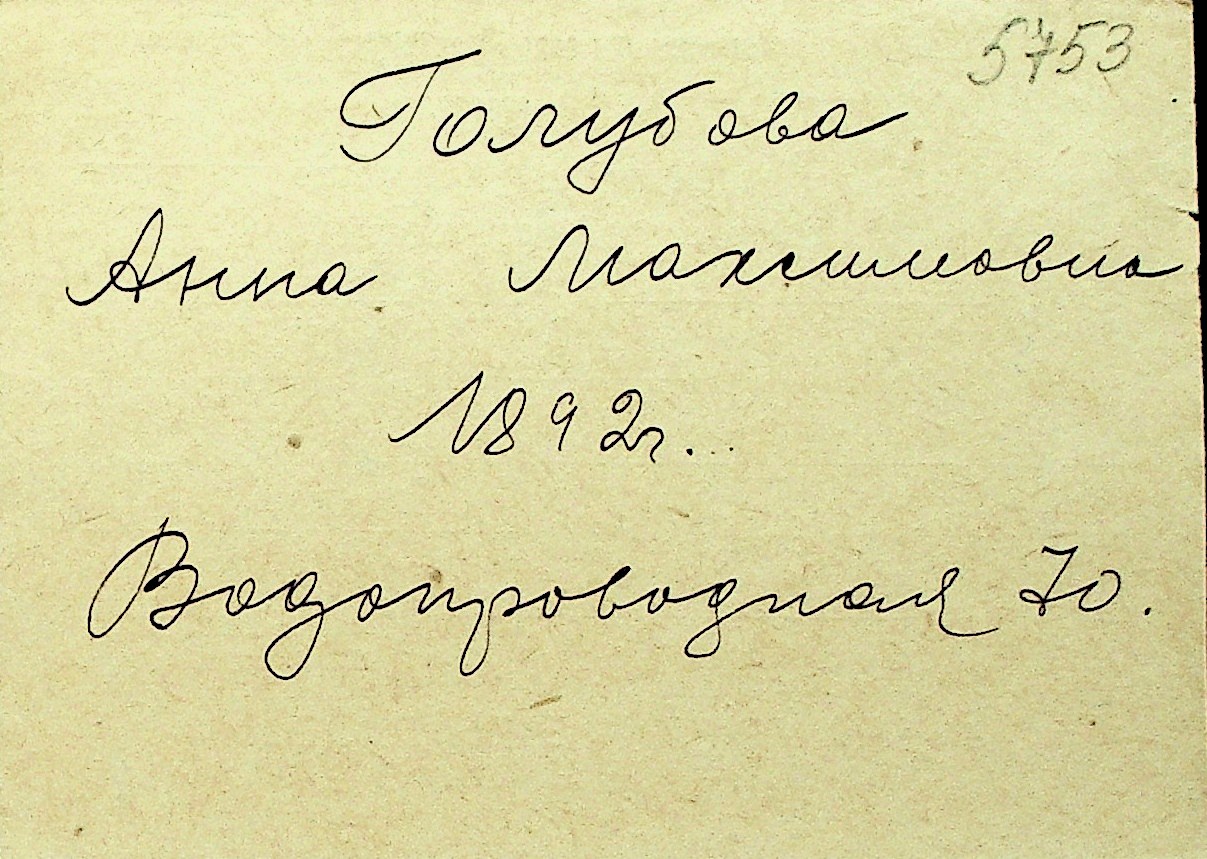 5753
Голубова
Анна Максимовна
1892г.
Водопроводная 70.